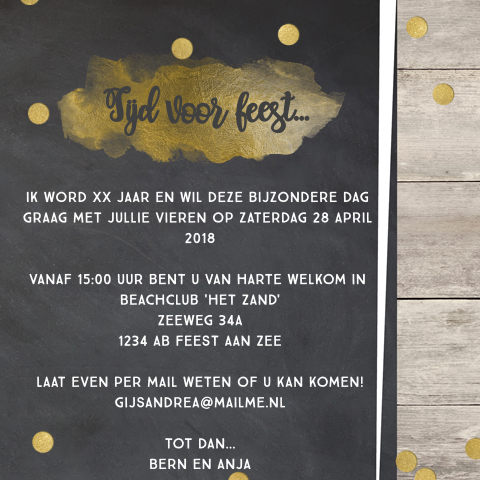 Tijd voor feest...
IK WORD XX JAAR EN WIL DEZE BIJZONDERE DAG
GRAAG MET JULLIE VIEREN OP ZATERDAG 28 APRIL
2018
VANAF 15:00 UUR BENT U VAN HARTE WELKOM IN
BEACHCLUB 'HET ZAND'
ZEEWEG 34A
1234 AB FEEST AAN ZEE
LAAT EVEN PER MAIL WETEN OF U KAN KOMEN!
GIJSANDREA@MAILME.NL
TOT DAN...
BERN EN ANJA